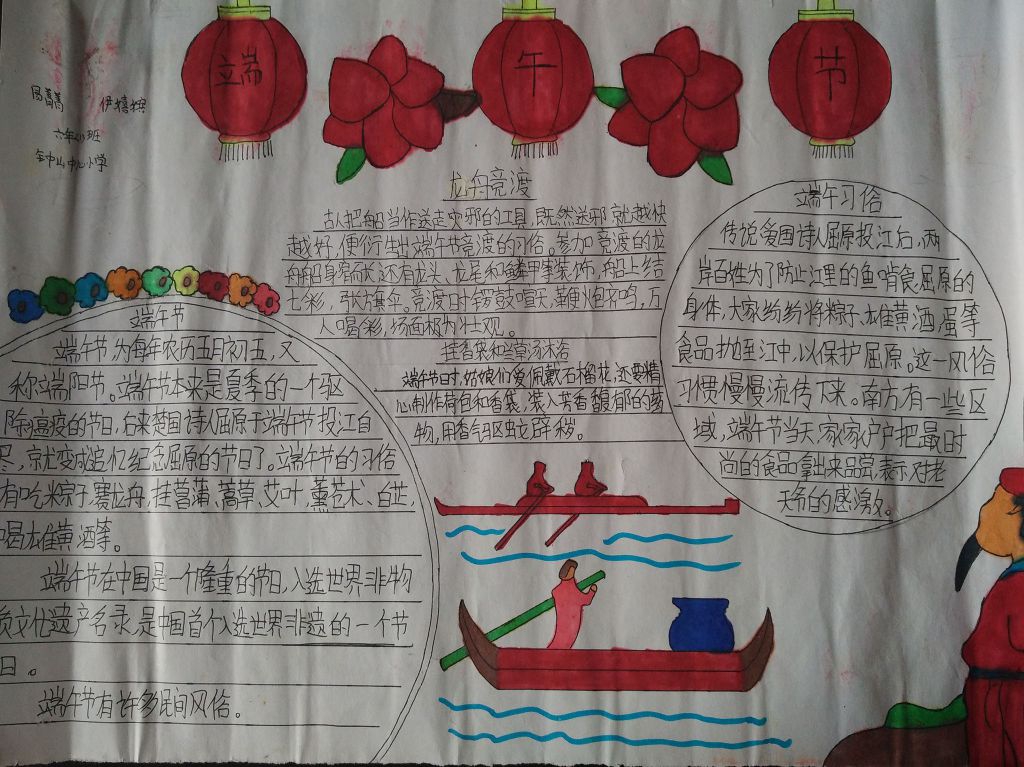 端
午
节
六年(2)班
中心小学
龙舟竞渡
古人把船当作送走灾邪的工具,既然送邪就越快
越好,便衍生出端午节竞渡的习俗。参加竞渡的龙
舟船身窄而长,还有龙头、龙尾和鳞甲装饰,船上结
七彩,张伞,竞渡时锣鼓喧天,鞭炮齐鸣,万
人喝彩,场面极为壮观。
挂香袋和兰草汤沐浴
端午节时,姑娘们爱佩戴石榴花,还要精
心制作荷包和香袋,装入芳香馥郁的药
物,用香气驱蚊辟秽。
端午习俗
传说爱国诗人屈原投江后,两
岸百姓为了防止江里的鱼啃食屈原的
身体,大家纷纷将粽子、雄黄酒,蛋等
食品抛至江中,以保护屈原。这一风俗
习惯慢慢流传下来。南方有一些区
域,端午节当天,家家户户把最时
尚的食品拿出来品尝,表示对老
天爷的感激。
端午节
端午节,为每年农历五月初五,又
称端阳节。端午节本来是夏季的一个驱
除瘟疫的节日,后来楚国诗人屈原于端午节投江自
尽,就变成追忆纪念屈原的节日了。端午节的习俗
有吃粽子,赛龙舟,挂菖蒲、蒿草、艾叶,薰苍术、白芷,
喝雄黄酒等。
端午节在中国是一个隆重的节日,入选世界非物
质文化遗产名录,是中国首个入选世界非遗的一个节
日。
端午节有许多民间风俗。